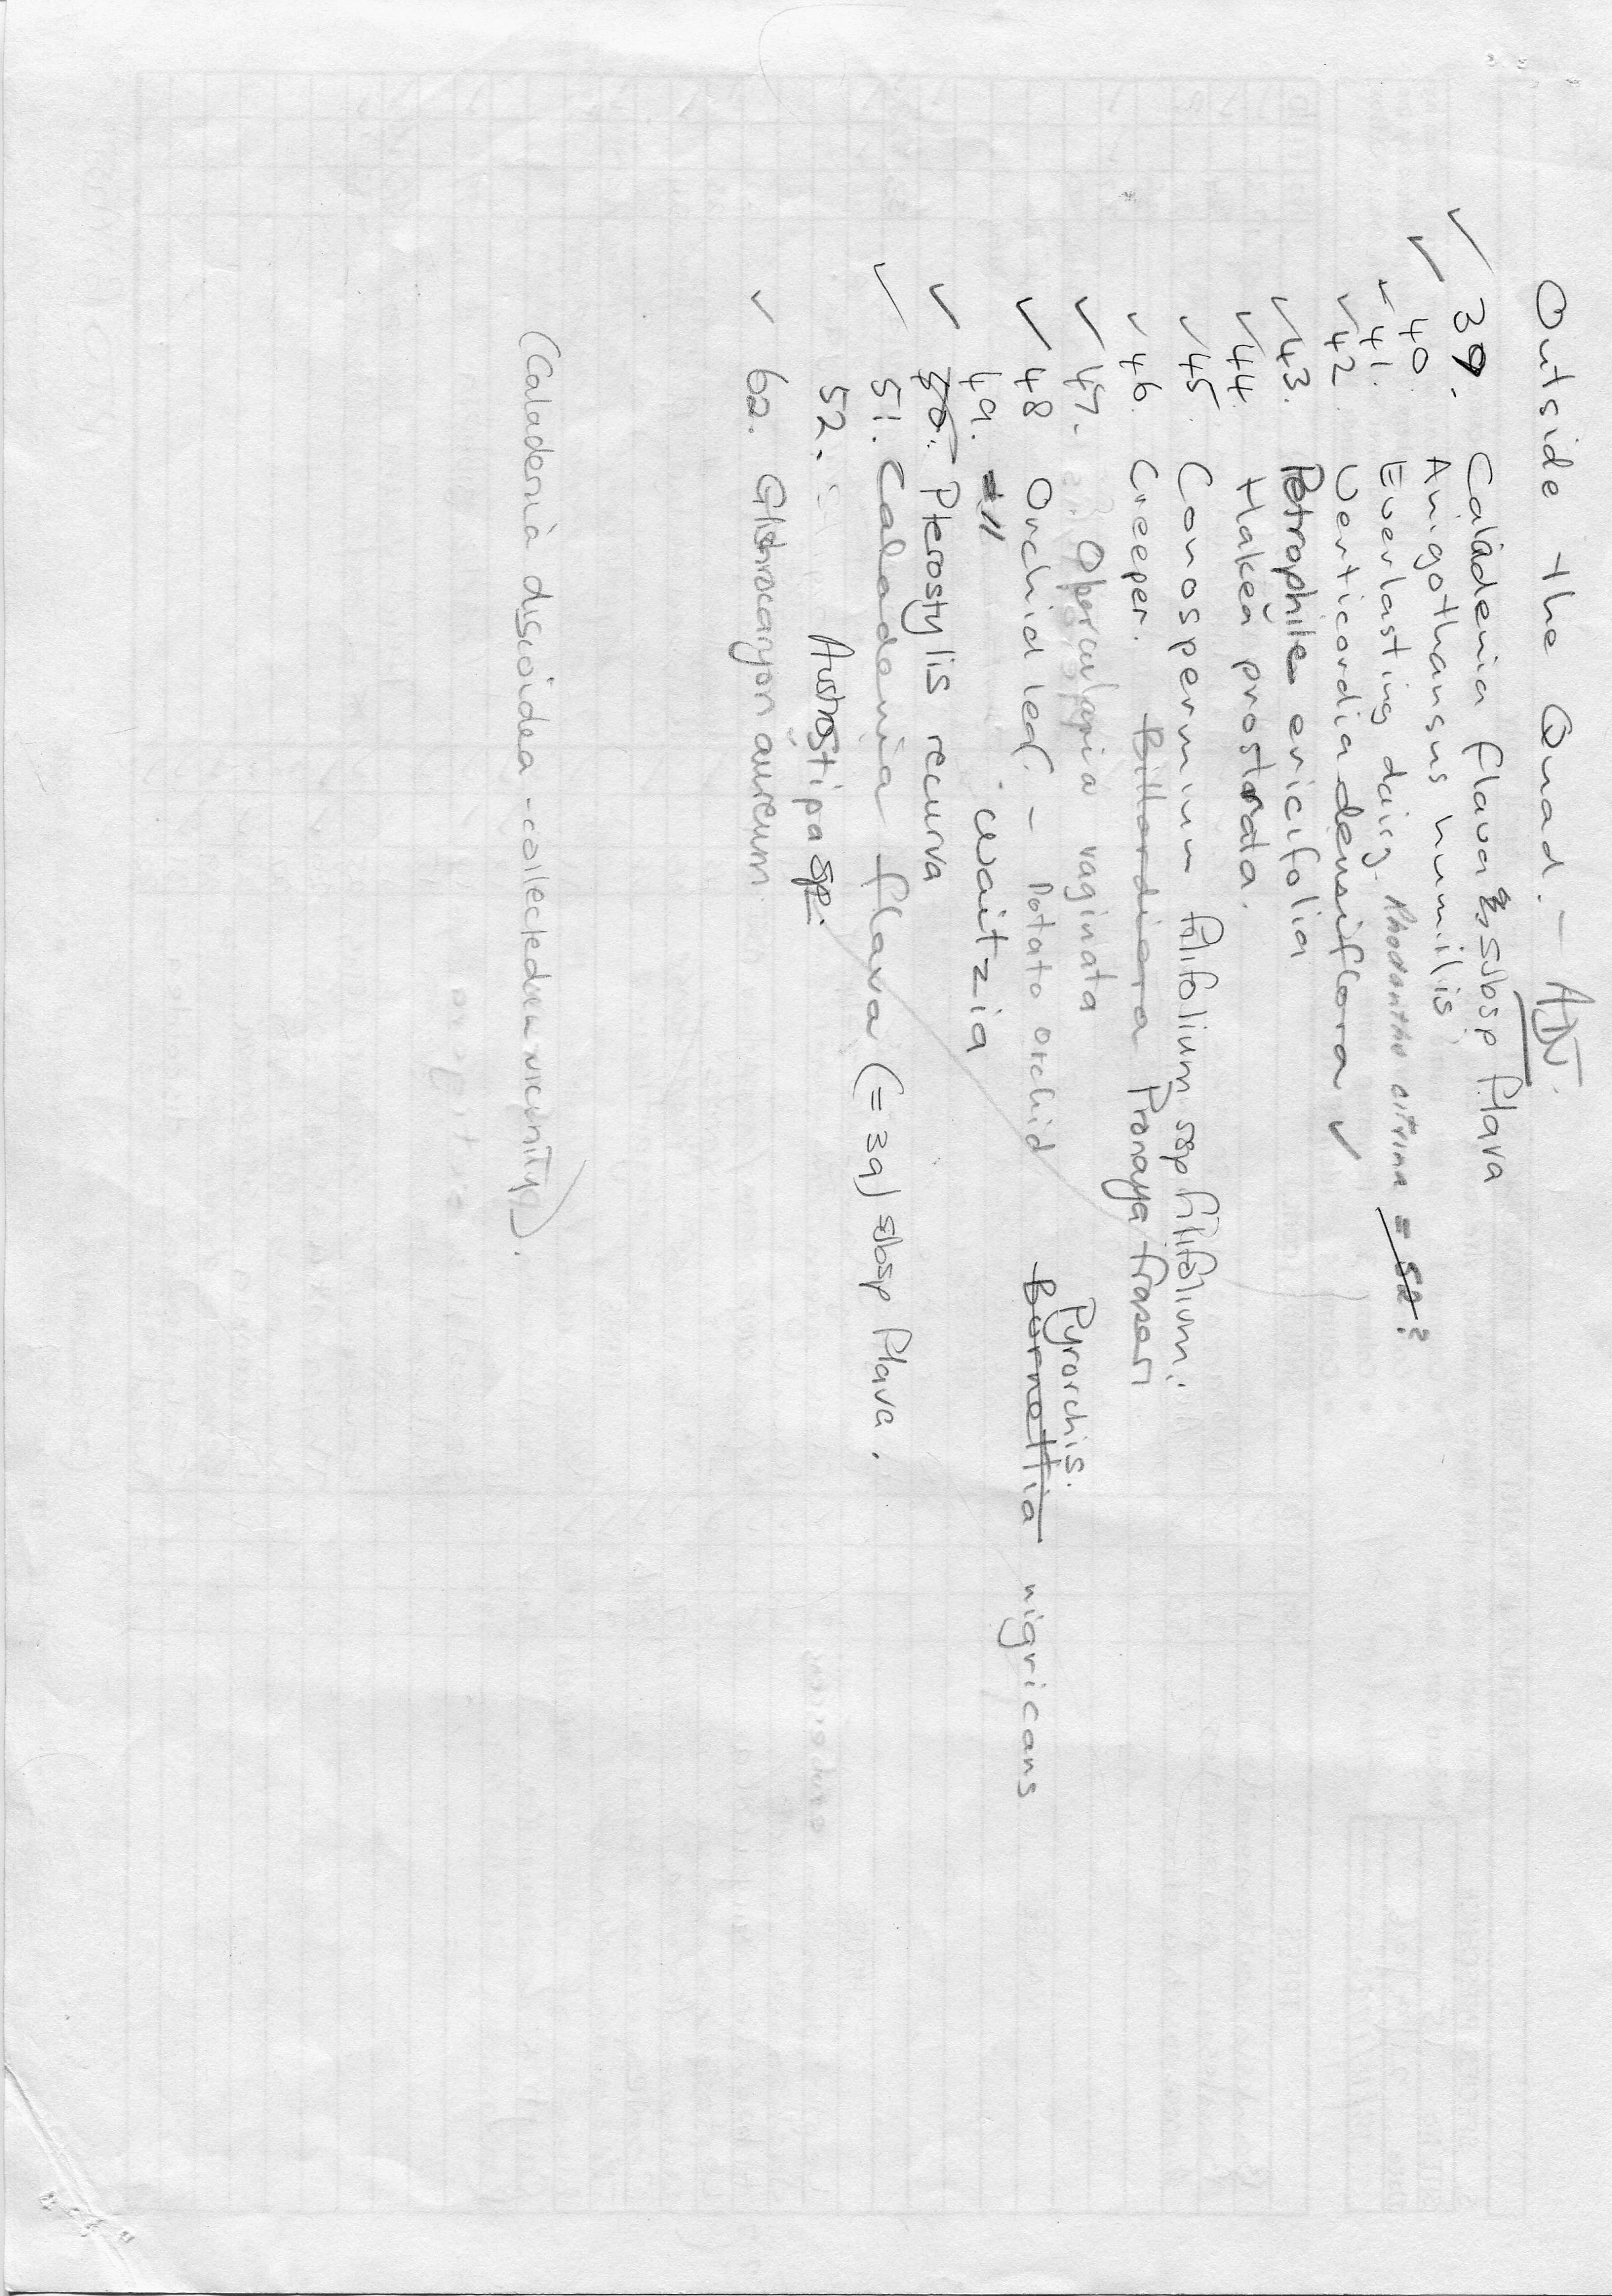 Outside the Quad. - AJN.
✓ 39. Caladenia flava subsp flava
✓ 40. Anigothansus humilis
✓ 41. Everlasting daisy. Rhodanthe citrina = 52?
✓ 42. Verticordia densiflora ✓
✓ 43. Petrophile ericifolia
✓ 44. Hakea prostrata.
✓ 45. Conospermum filifolium ssp filifolium.
✓ 46. Creeper. Billardiera Pronaya fraseri
✓ 47. Opercularia vaginata
✓ 48 Orchid leaf. - Potato orchid Burnettia Pyrorchis. nigricans
49. Waitzia
✓ 50. Pterostylis recurva
✓ 51. Caladenia flava (= 39) subsp flava.
52. Austrostipa sp.
✓ 62. Glischrocaryon aureum
(Caladenia discoidea - collected in vicinity).